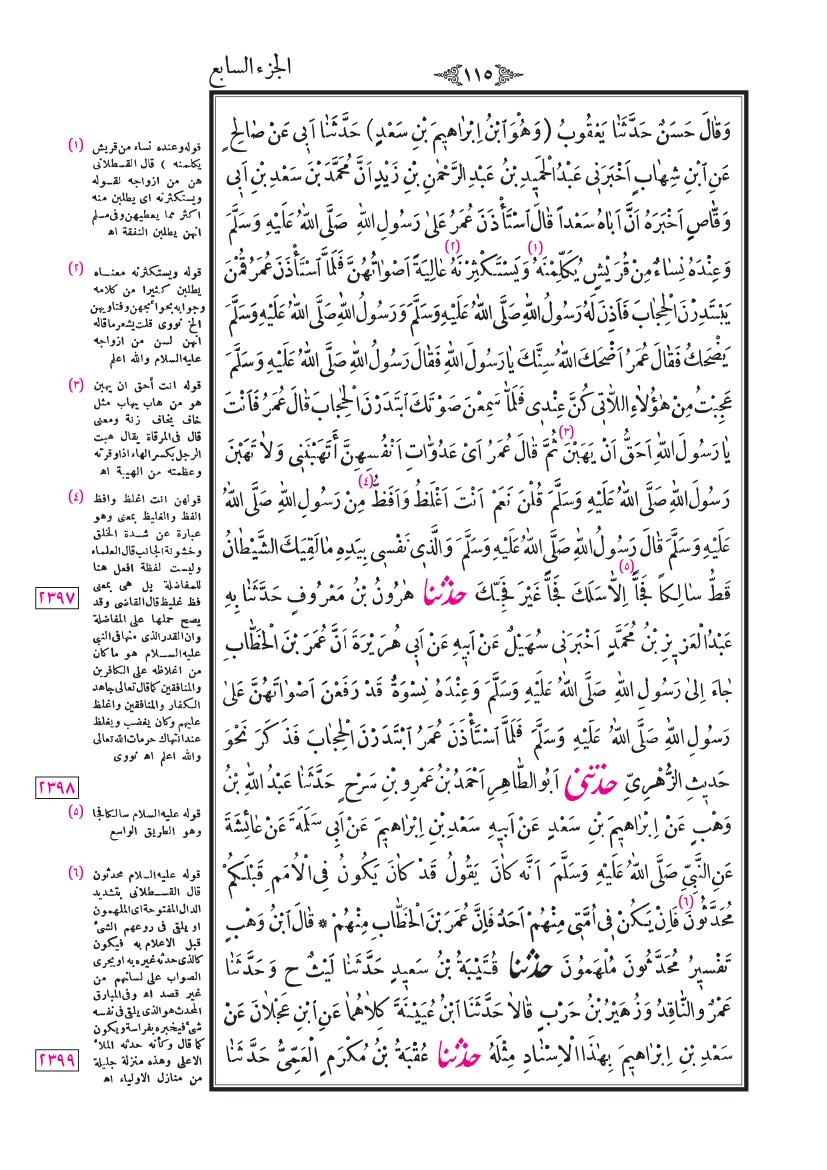 الجزء السابع
١١٥
وَقَالَ حَسَنٌ حَدَّثَنَا يَعْقُوبُ (وَهُوَ ابْنُ اِبْرَاهِيمَ بْنِ سَعْدٍ) حَدَّثَنَا اَبِى عَنْ صَالِحٍ
عَنِ ابْنِ شِهَابٍ اَخْبَرَنِى عَبْدُ الْحَمِيدِ بْنُ عَبْدِ الرَّحْمٰنِ بْنِ زَيْدٍ اَنَّ مُحَمَّدَ بْنَ سَعْدِ بْنِ اَبِى
وَقَّاصٍ اَخْبَرَهُ اَنَّ اَبَاهُ سَعْداً قَالَ اسْتَأْذَنَ عُمَرُ عَلىٰ رَسُولِ اللهِ صَلَّى اللهُ عَلَيْهِ وَسَلَّمَ
وَعِنْدَهُ نِسَاءٌ مِنْ قُرَيْشٍ يُكَلِّمْنَهُ (١) وَيَسْتَكْثِرْنَهُ (٢) عَالِيَةً اَصْوَاتُهُنَّ فَلَمَّا اسْتَأْذَنَ عُمَرُ قُمْنَ
يَبْتَدِرْنَ الْحِجَابَ فَاَذِنَ لَهُ رَسُولُ اللهِ صَلَّى اللهُ عَلَيْهِ وَسَلَّمَ وَرَسُولُ اللهِ صَلَّى اللهُ عَلَيْهِ وَسَلَّمَ
يَضْحَكُ فَقَالَ عُمَرُ اَضْحَكَ اللهُ سِنَّكَ يَا رَسُولَ اللهِ فَقَالَ رَسُولُ اللهِ صَلَّى اللهُ عَلَيْهِ وَسَلَّمَ
عَجِبْتُ مِنْ هٰؤُلَاءِ اللَّاتِى كُنَّ عِنْدِى فَلَمَّا سَمِعْنَ صَوْتَكَ ابْتَدَرْنَ الْحِجَابَ قَالَ عُمَرُ فَاَنْتَ
يَا رَسُولَ اللهِ اَحَقُّ اَنْ يَهَبْنَ (٣) ثُمَّ قَالَ عُمَرُ اَىْ عَدُوَّاتِ اَنْفُسِهِنَّ أَتَهَبْنَنِى وَلَا تَهَبْنَ
رَسُولَ اللهِ صَلَّى اللهُ عَلَيْهِ وَسَلَّمَ قُلْنَ نَعَمْ اَنْتَ اَغْلَظُ وَاَفَظُّ (٤) مِنْ رَسُولِ اللهِ صَلَّى اللهُ
عَلَيْهِ وَسَلَّمَ قَالَ رَسُولُ اللهِ صَلَّى اللهُ عَلَيْهِ وَسَلَّمَ وَالَّذِى نَفْسِى بِيَدِهِ مَا لَقِيَكَ الشَّيْطَانُ
قَطُّ سَالِكاً فَجًّا (٥) اِلَّا سَلَكَ فَجًّا غَيْرَ فَجِّكَ حَدَّثَنَا هٰرُونُ بْنُ مَعْرُوفٍ حَدَّثَنَا بِهِ
عَبْدُ الْعَزِيزِ بْنُ مُحَمَّدٍ اَخْبَرَنِى سُهَيْلٌ عَنْ اَبِيهِ عَنْ اَبِى هُرَيْرَةَ اَنَّ عُمَرَ بْنَ الْخَطَّابِ
جَاءَ اِلىٰ رَسُولِ اللهِ صَلَّى اللهُ عَلَيْهِ وَسَلَّمَ وَعِنْدَهُ نِسْوَةٌ قَدْ رَفَعْنَ اَصْوَاتَهُنَّ عَلىٰ
رَسُولِ اللهِ صَلَّى اللهُ عَلَيْهِ وَسَلَّمَ فَلَمَّا اسْتَأْذَنَ عُمَرُ ابْتَدَرْنَ الْحِجَابَ فَذَكَرَ نَحْوَ
حَدِيثِ الزُّهْرِىِّ حَدَّثَنِى اَبُو الطَّاهِرِ اَحْمَدُ بْنُ عَمْرِو بْنِ سَرْحٍ حَدَّثَنَا عَبْدُ اللهِ بْنُ
وَهْبٍ عَنْ اِبْرَاهِيمَ بْنِ سَعْدٍ عَنْ اَبِيهِ سَعْدِ بْنِ اِبْرَاهِيمَ عَنْ اَبِى سَلَمَةَ عَنْ عَائِشَةَ
عَنِ النَّبِىِّ صَلَّى اللهُ عَلَيْهِ وَسَلَّمَ اَنَّهُ كَانَ يَقُولُ قَدْ كَانَ يَكُونُ فِى الْاُمَمِ قَبْلَكُمْ
مُحَدَّثُونَ (٦) فَاِنْ يَكُنْ فِى اُمَّتِى مِنْهُمْ اَحَدٌ فَاِنَّ عُمَرَ بْنَ الْخَطَّابِ مِنْهُمْ * قَالَ ابْنُ وَهْبٍ
تَفْسِيرُ مُحَدَّثُونَ مُلْهَمُونَ حَدَّثَنَا قُتَيْبَةُ بْنُ سَعِيدٍ حَدَّثَنَا لَيْثٌ ح وَحَدَّثَنَا
عَمْرٌو النَّاقِدُ وَزُهَيْرُ بْنُ حَرْبٍ قَالَا حَدَّثَنَا ابْنُ عُيَيْنَةَ كِلَاهُمَا عَنِ ابْنِ عَجْلَانَ عَنْ
سَعْدِ بْنِ اِبْرَاهِيمَ بِهٰذَا الْاِسْنَادِ مِثْلَهُ حَدَّثَنَا عُقْبَةُ بْنُ مُكْرَمٍ الْعَمِّىُّ حَدَّثَنَا
(١) قوله وعنده نساء من قريش
يكلمنه ) قال القسطلانى
هن من ازواجه لقوله
ويستكثرنه اى يطلبن منه
اكثر مما يعطيهن وفى مسلم
انهن يطلبن النفقة اه
(٢) قوله ويستكثرنه معناه
يطلبن كثيرا من كلامه
وجوابه بحوائجهن وفتاويهن
الخ نووى قلت يشعر ما قاله
انهن لسن من ازواجه
عليه السلام والله اعلم
(٣) قوله انت أحق ان يهبن
هو من هاب يهاب مثل
خاف يخاف زنة ومعنى
قال فى المرقاة يقال هبت
الرجل بكسر الهاء اذا وقرته
وعظمته من الهيبة اه
(٤) قولهن انت اغلظ وافظ
الفظ والغليظ بمعنى وهو
عبارة عن شدة الخلق
وخشونة الجانب قال العلماء
وليست لفظة افعل هنا
للمفاضلة بل هى بمعنى
فظ غليظ قال القاضى وقد
يصح حملها على المفاضلة
وان القدر الذى منها فى النبى
عليه السلام هو ما كان
من اغلاظه على الكافرين
والمنافقين كما قال تعالى جاهد
الكفار والمنافقين واغلظ
عليهم وكان يغضب ويغلظ
عند انتهاك حرمات الله تعالى
والله اعلم اه نووى
(٥) قوله عليه السلام سالكا فجا
وهو الطريق الواسع
(٦) قوله عليه السلام محدثون
قال القسطلانى بتشديد
الدال المفتوحة اى الملهمون
او يلقى فى روعهم الشئ
قبل الاعلام به فيكون
كالذى حدثه غيره به او يجرى
الصواب على لسانهم من
غير قصد اه وفى المبارق
المحدث هو الذى يلقى فى نفسه
شئ فيخبره بفراسة ويكون
كما قال وكأنه حدثه الملأ
الاعلى وهذه منزلة جليلة
من منازل الاولياء اه
٢٣٩٧
٢٣٩٨
٢٣٩٩